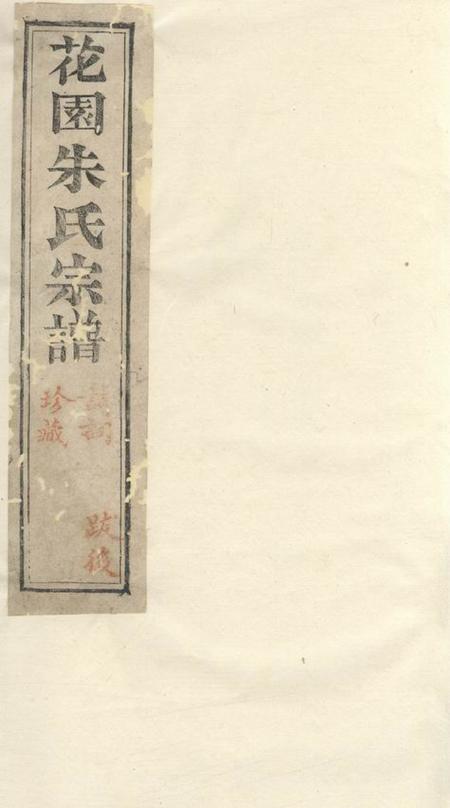 花園朱氏宗譜
珍藏
跋後